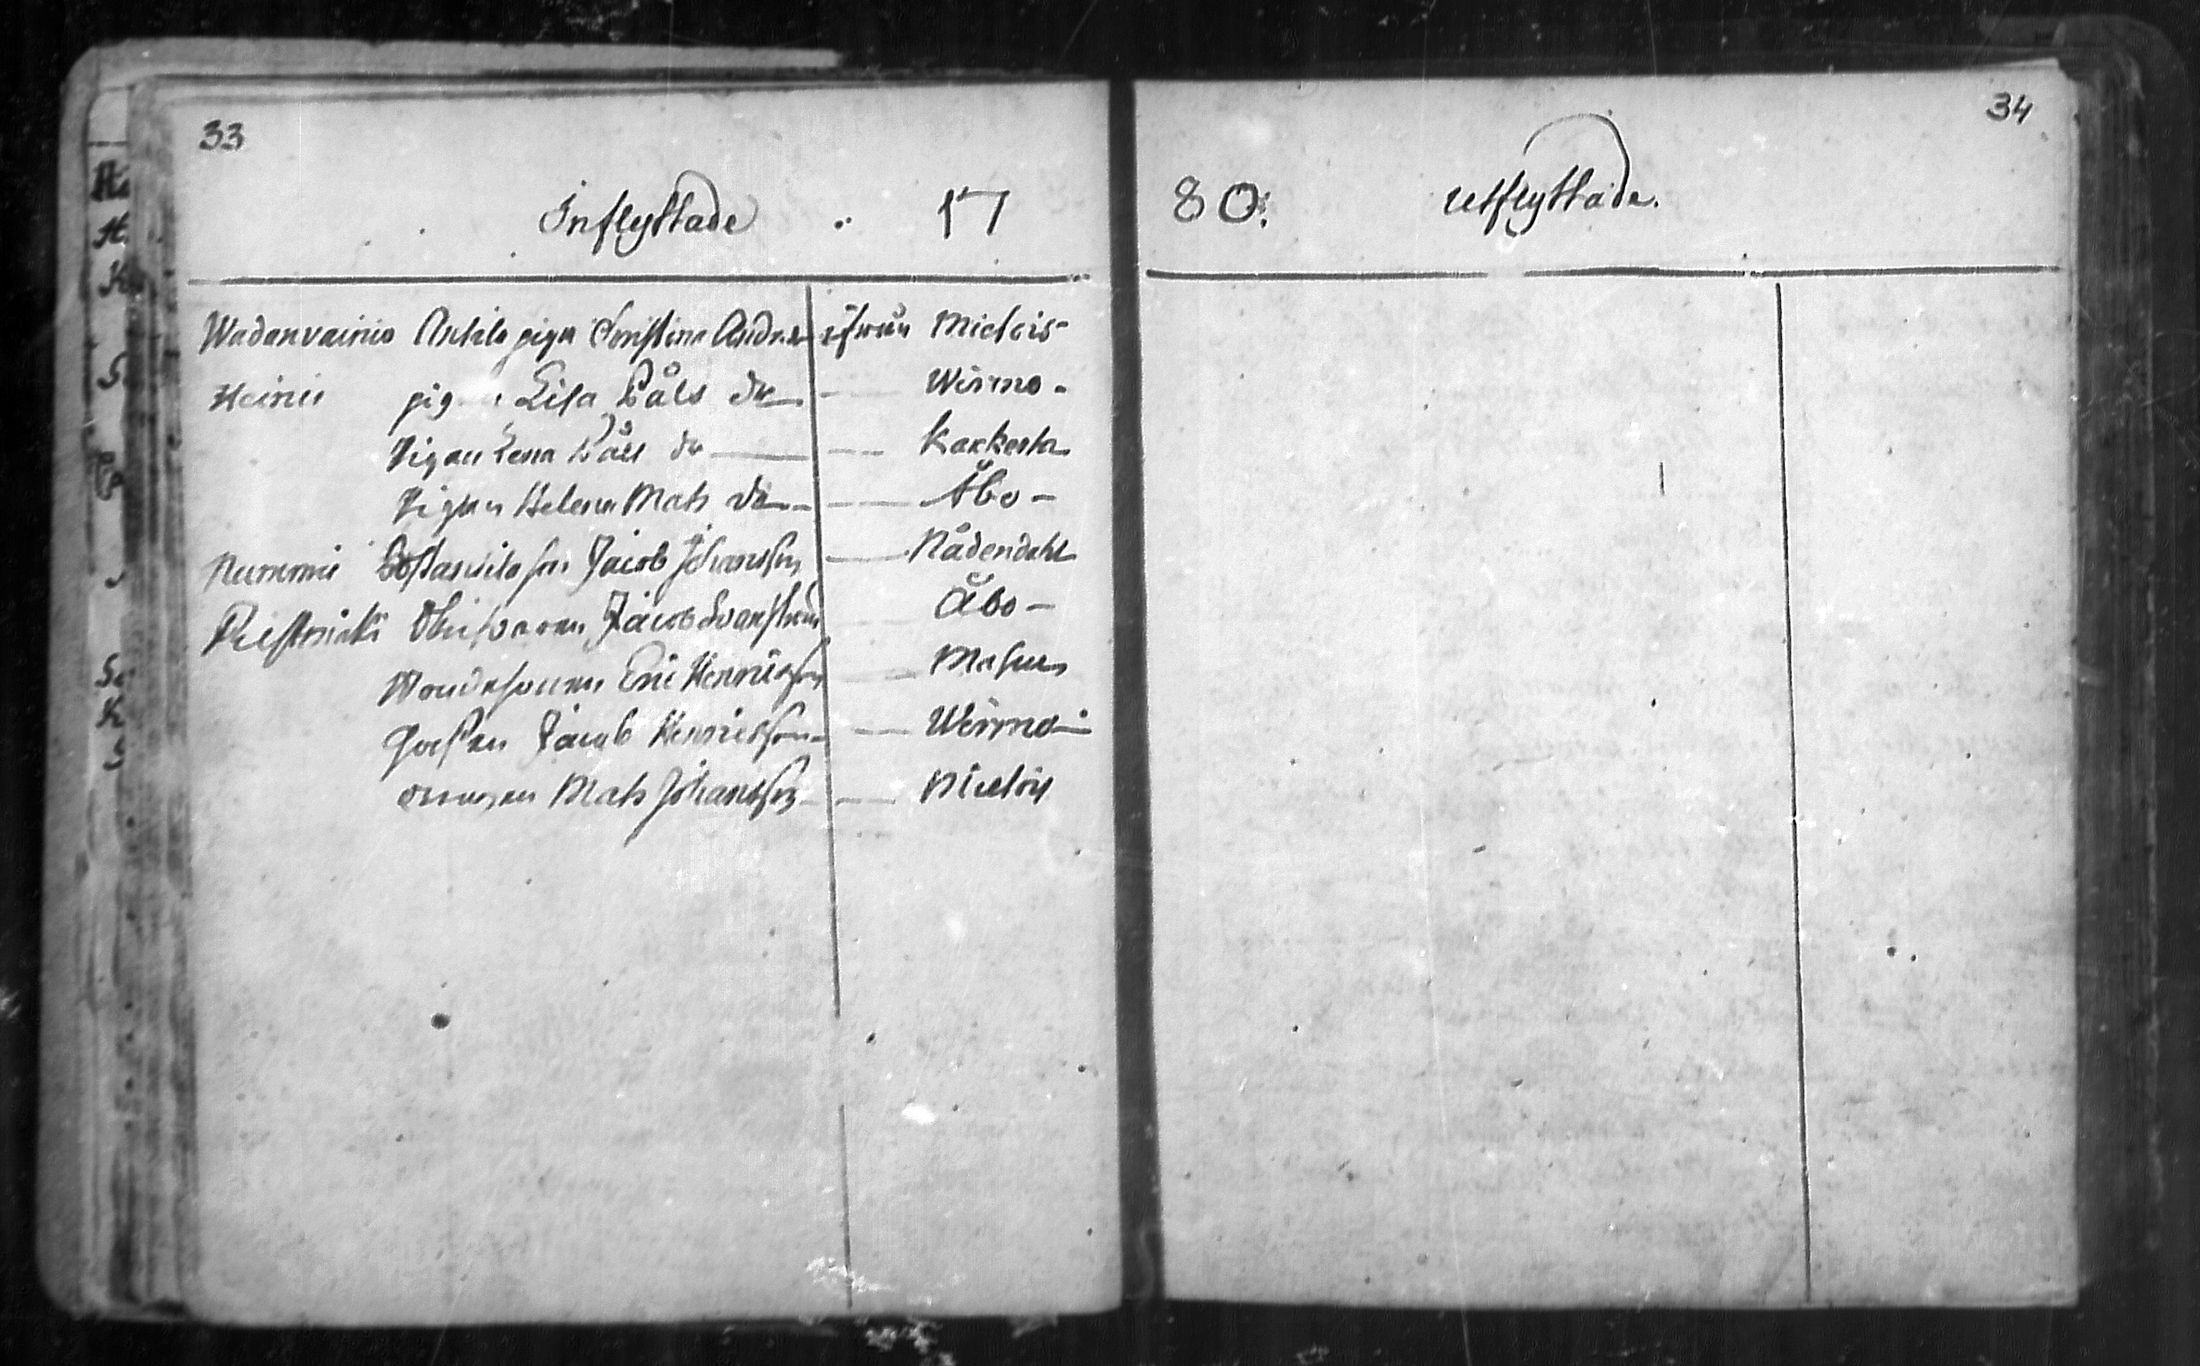 33
Inflyttade 17
Wadanvainio Anttila pigan Christina Anders ifrån Mietois
Heinis pig Lisa Påls dr Wirmo
Pigan Lena Påls dr Karkesta
Pigan Helena Mats dr Åbo
Nummis Jacob Johansson Nådendahl
Jacob Åbo
Eric Henricsson Masku
Jacob Henricsson Wirmo
Drängen Mats Johansson Mietois
34
80: Utflyttade.